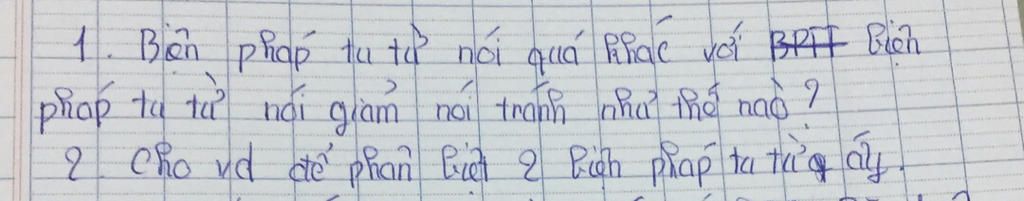 1. Biện pháp tu từ nói quá khác với BPTT biện
pháp tu từ nói giảm nói tránh như thế nào?
2. Cho vd để phân biệt 2 biện pháp tu từ ấy.